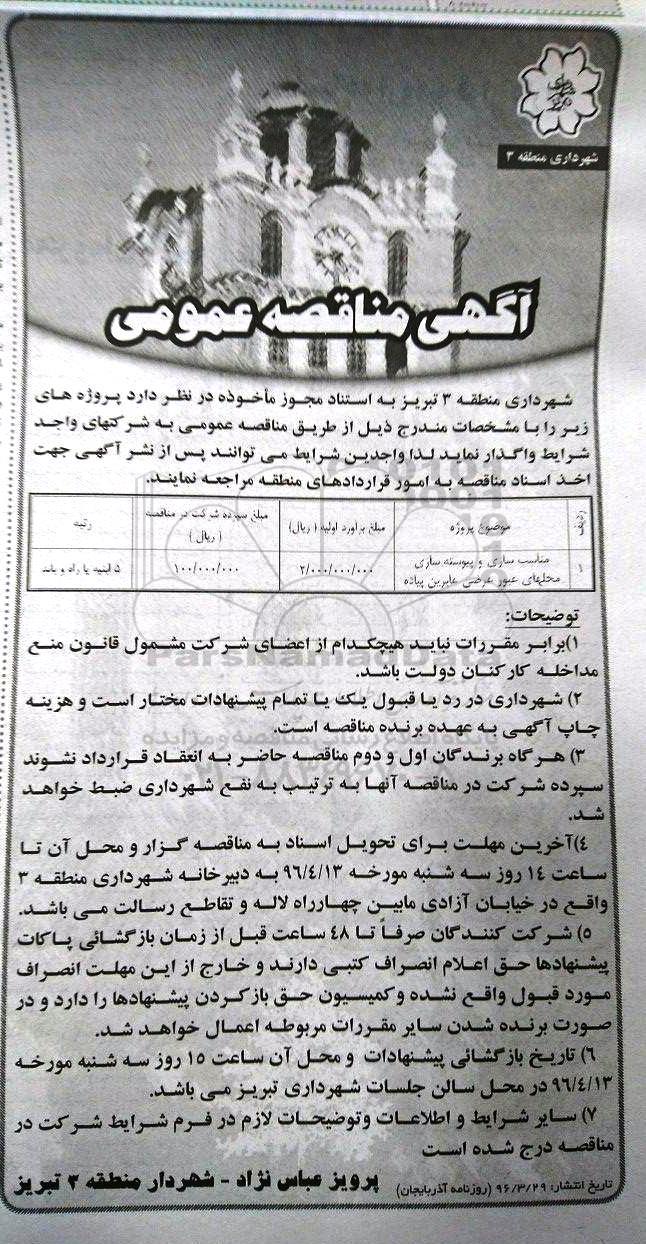 شهرداری منطقه ۳
آگهی مناقصه عمومی
شهرداری منطقه ۳ تبریز به استناد مجوز مأخوذه در نظر دارد پروژه های
زیر را با مشخصات مندرج ذیل از طریق مناقصه عمومی به شرکتهای واجد
شرایط واگذار نماید لذا واجدین شرایط می توانند پس از نشر آگهی جهت
اخذ اسناد مناقصه به امور قراردادهای منطقه مراجعه نمایند.
ردیف موضوع پروژه مبلغ برآورد اولیه (ریال) مبلغ سپرده شرکت در مناقصه (ریال) رتبه
۱ مناسب سازی و پیوسته سازی محلهای عبور عرضی عابرین پیاده ۲/۰۰۰/۰۰۰/۰۰۰ ۱۰۰/۰۰۰/۰۰۰ ۵ ابنیه یا راه و باند
توضیحات:
۱)برابر مقررات نباید هیچکدام از اعضای شرکت مشمول قانون منع
مداخله کارکنان دولت باشد.
۲) شهرداری در رد یا قبول یک یا تمام پیشنهادات مختار است و هزینه
چاپ آگهی به عهده برنده مناقصه است.
۳) هر گاه برندگان اول و دوم مناقصه حاضر به انعقاد قرارداد نشوند
سپرده شرکت در مناقصه آنها به ترتیب به نفع شهرداری ضبط خواهد
شد.
۴)آخرین مهلت برای تحویل اسناد به مناقصه گزار و محل آن تا
ساعت ۱۴ روز سه شنبه مورخه ۹۶/۴/۱۳ به دبیرخانه شهرداری منطقه ۳
واقع در خیابان آزادی مابین چهارراه لاله و تقاطع رسالت می باشد.
۵) شرکت کنندگان صرفاً تا ۴۸ ساعت قبل از زمان بازگشائی پاکات
پیشنهادها حق اعلام انصراف کتبی دارند و خارج از این مهلت انصراف
مورد قبول واقع نشده و کمیسیون حق باز کردن پیشنهادها را دارد و در
صورت برنده شدن سایر مقررات مربوطه اعمال خواهد شد.
۶) تاریخ بازگشائی پیشنهادات و محل آن ساعت ۱۵ روز سه شنبه مورخه
۹۶/۴/۱۳ در محل سالن جلسات شهرداری تبریز می باشد.
۷) سایر شرایط و اطلاعات وتوضیحات لازم در فرم شرایط شرکت در
مناقصه درج شده است
تاریخ انتشار: ۹۶/۳/۲۹ (روزنامه آذربایجان) پرویز عباس نژاد - شهردار منطقه ۳ تبریز
ParsNamadData